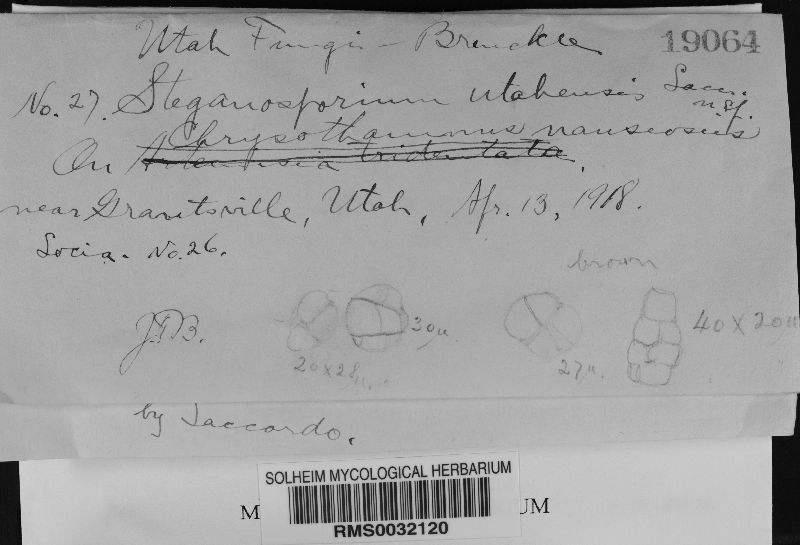 Utah Fungi - Brenckle
19064
No. 27. Steganosporium utahensis Sacc.
n. sp.
Chrysothamnus nauseosus
On Artemisia tridentata.
near Grantsville, Utah, Apr. 13, 1918.
Socia. No. 26.
brown
J.F.B.
30µ.
20 x 28µ.
27µ.
40 x 20µ
by Saccardo.
SOLHEIM MYCOLOGICAL HERBARIUM
M UM
RMS0032120